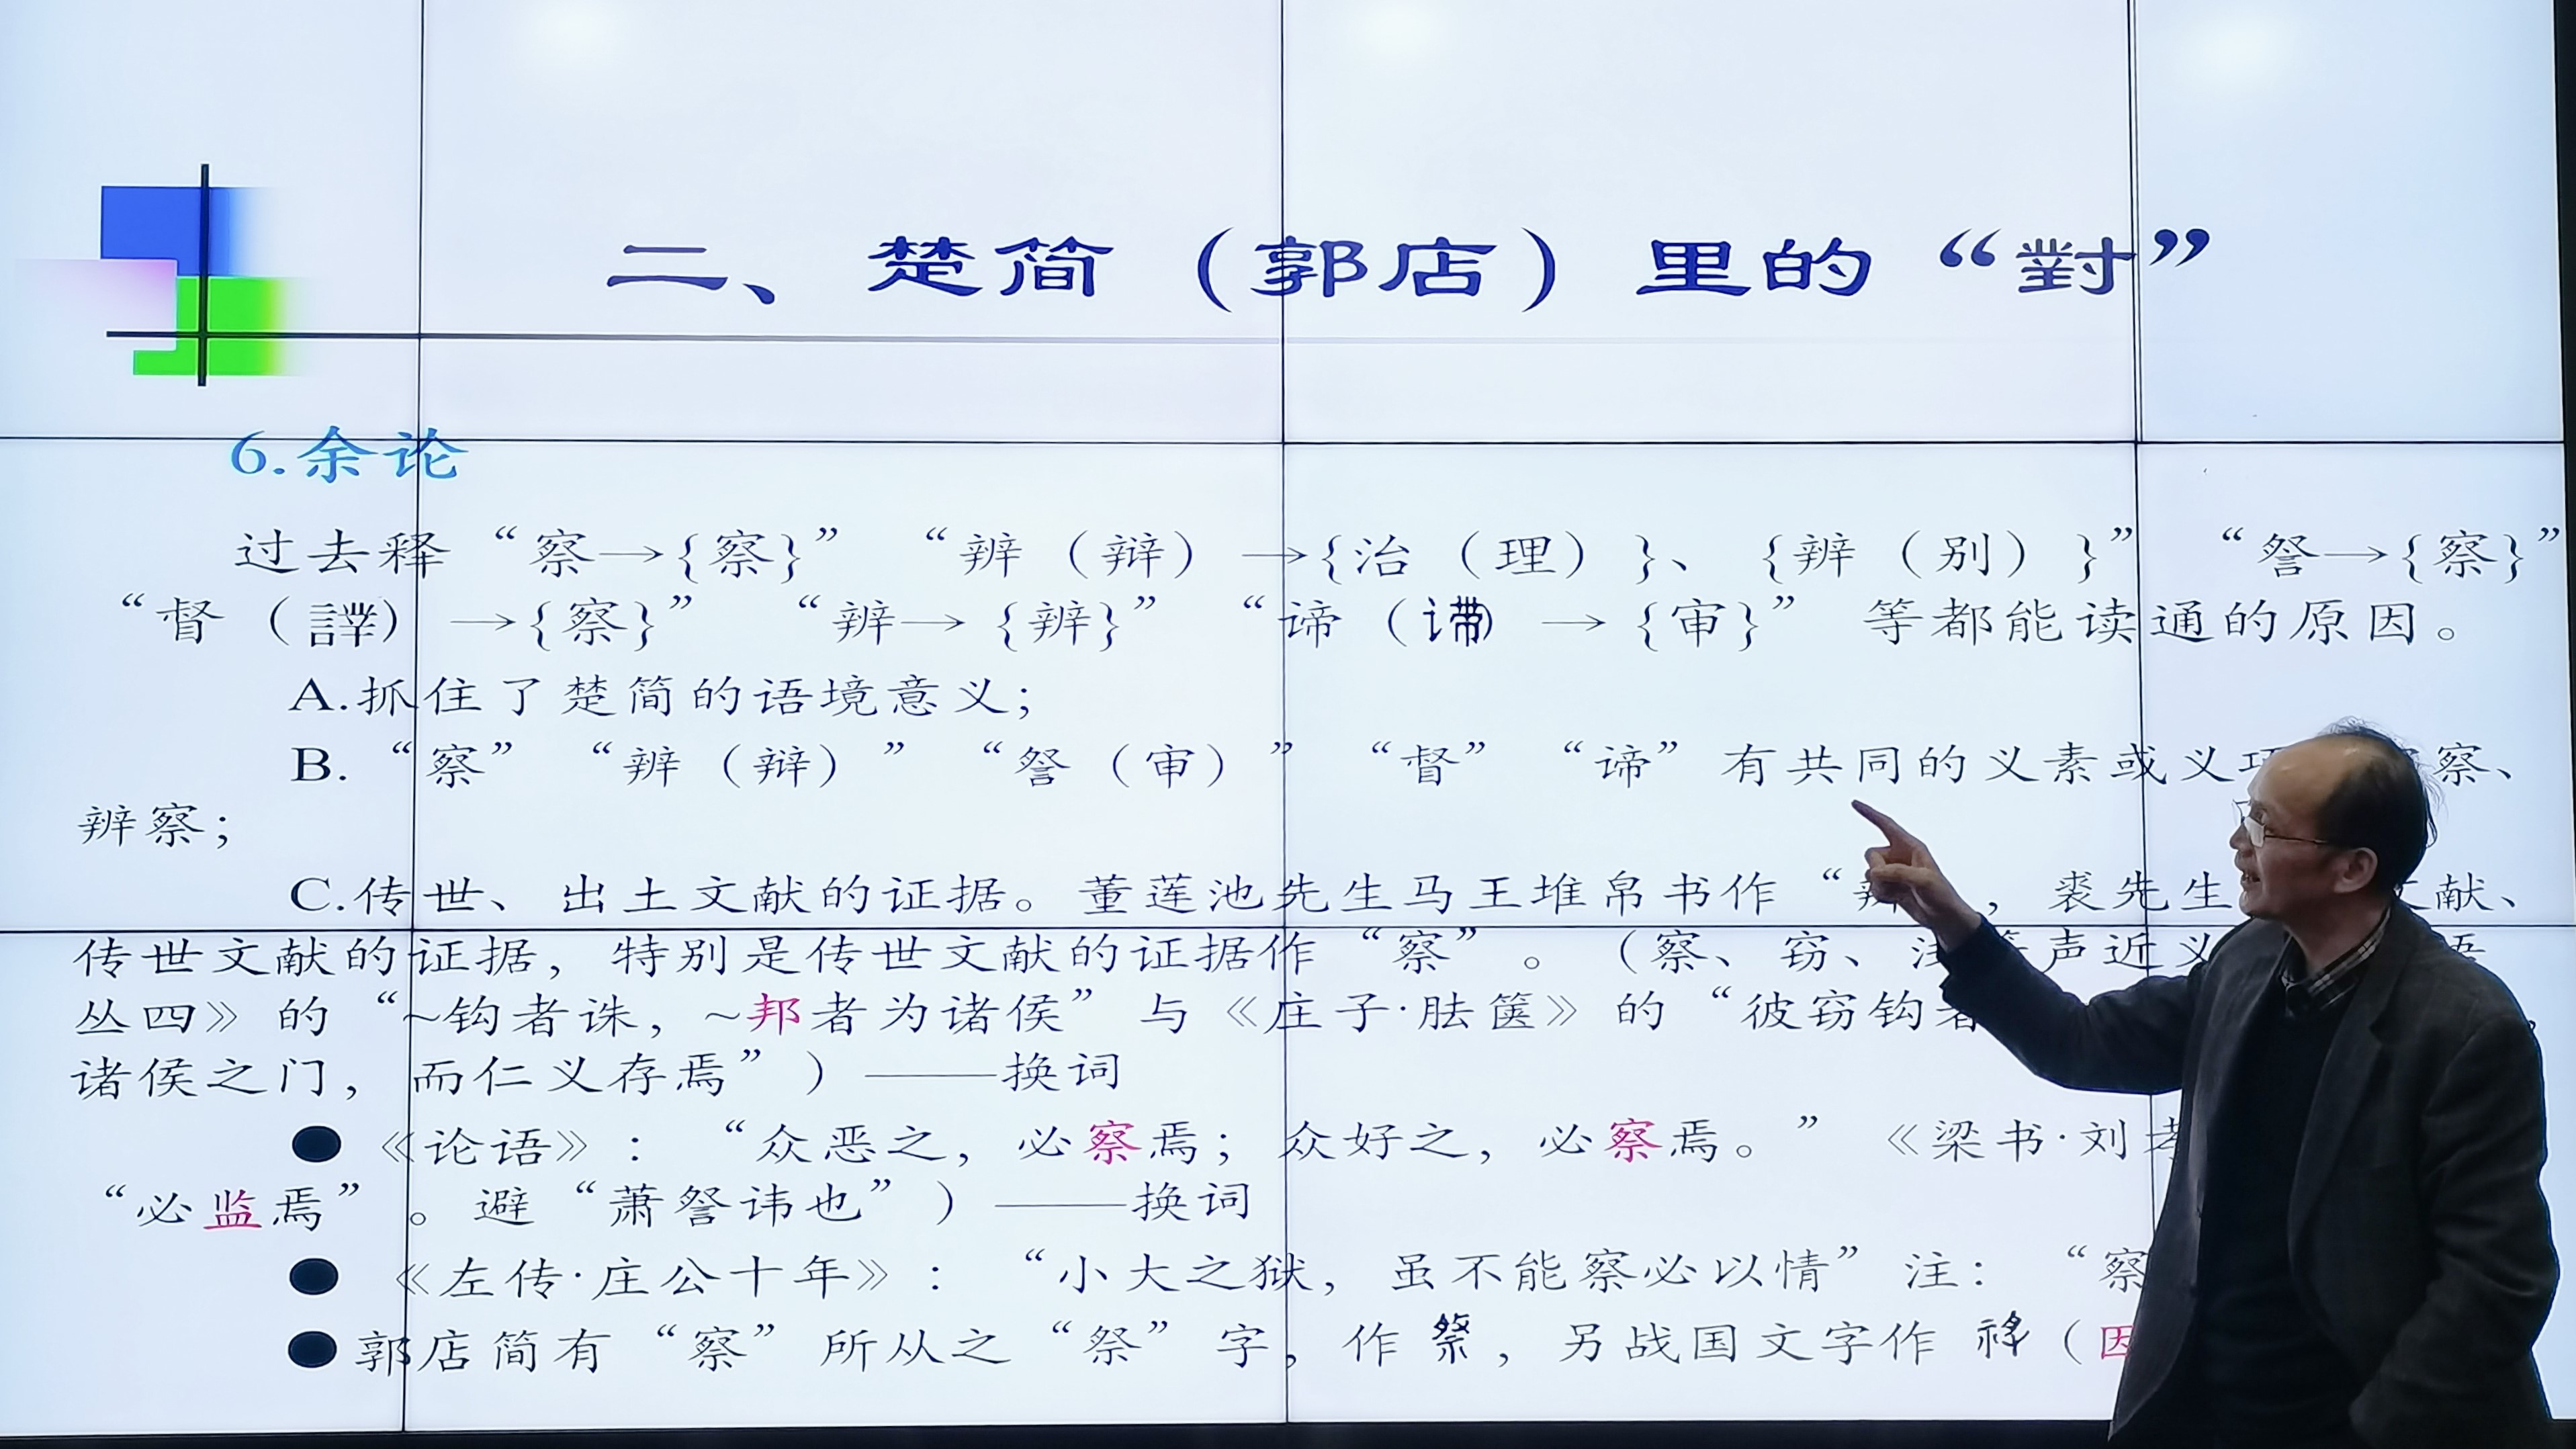 二、楚简（郭店）里的“對”
6.余论
过去释“察→{察}” “辨（辩）→{治（理）}、{辨（别）}” “詧→{察}”
“督（）→{察}” “辨→{辨}” “谛（）→{审}” 等都能读通的原因。
A.抓住了楚简的语境意义；
B.“察” “辨（辩）” “詧（审）” “督” “谛”有共同的义素或义 察、
辨察；
C.传世、出土文献的证据。董莲池先生马王堆帛书作“ ，裘先生 献、
传世文献的证据，特别是传世文献的证据作“察”。（察、窃、 声近义
丛四》的“~钩者诛，~邦者为诸侯”与《庄子·胠箧》的“彼窃钩者
诸侯之门，而仁义存焉”）——换词
●《论语》：“众恶之，必察焉；众好之，必察焉。” 《梁书·刘
“必监焉”。避“萧詧讳也”）——换词
●《左传·庄公十年》：“小大之狱，虽不能察必以情”注：“察
●郭店简有“察”所从之“祭”字，作 ，另战国文字作 （因